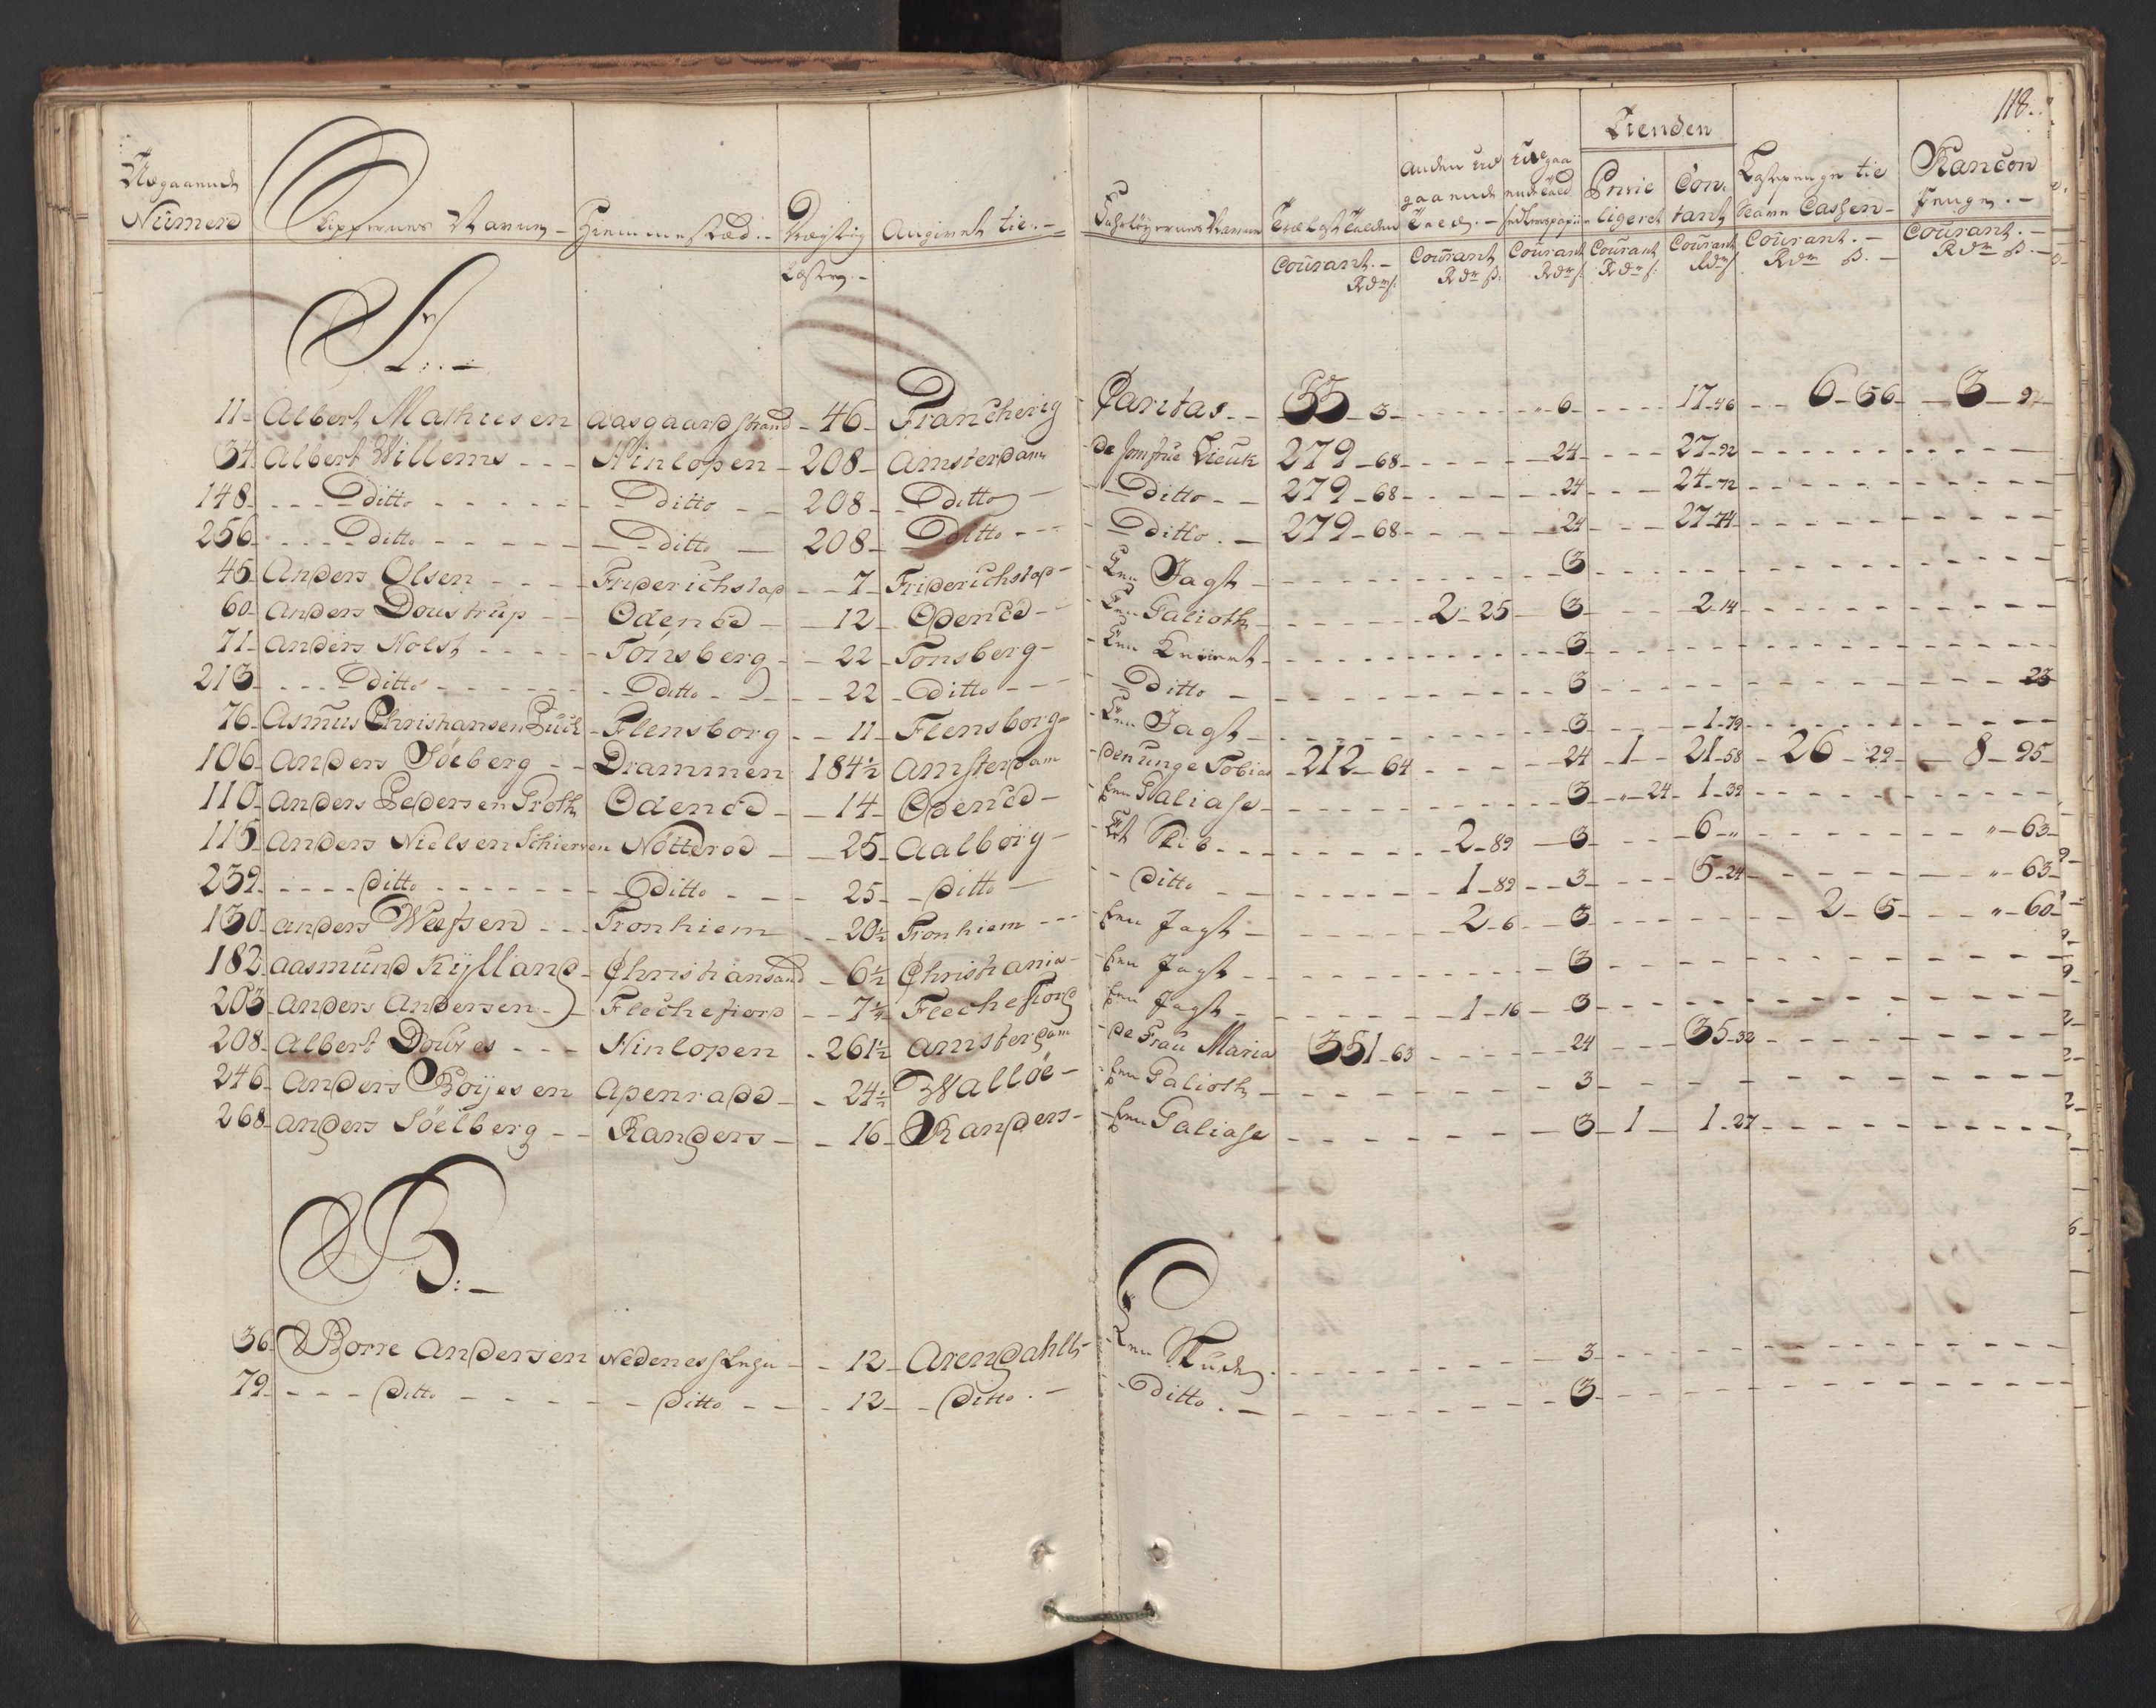 118.
Udgaaende Numero Skippernes Navne - Hiemmestæd. - Drægtig Læster. - Angivet til. - Fahrtøyernes Navne Trælast Tolden Courant. - Rdr s: Anden ud gaaende Told. - Courant Rdr s: Udgaa Courant Rdr s: Tienden Privi ligeret Courant Rdr s: Con tant Courant Rdr s Lastepenge til Cassen - Courant. - Rdr s. - Rancon Penge. - Courant. - Rdr s. -
A. -
11 - Albert Mathiesen Aasgaardstrand - 46 - Francherig - Caritas - - 55 - 3 - - - " 6 - - - 17 - 46 - - 6 - 56 - - 3 - 92
34 Albert Willems - - - Hinlopen - 208 - Amsterdam - de Jomfrue Lieuk 279 - 68 - - - 24 - - - 27 - 92 - - -
148 - - - - Ditto - - - - Ditto - - 208 - Ditto - - Ditto - - 279 - 68 - - - 24 - - - 24 - 72 - - -
256 - - - - Ditto - - - - Ditto - 208 - Ditto - - - - Ditto . - 279 - 68 - - - 24 - - - 27 - 74 - - -
45 Anders Olsen - - - - Friderichstad - - 7 - Friderichstad - - Een Jagt - - - - 3 - - -
60 - Anders Doustrup - - Odensd - - 12 - Odensd - - Een Galioth - - - - 2 - 25 - 3 - - - 2 - 14 - - -
71 - Anders Holst - - - - Tønsberg - - 22 - Tonsberg - - Een - - - 3 - - -
213 - - - - Ditto - - - - Ditto - - 22 - Ditto - - - - Ditto - - - - 3 - - - 23
76 - Asmus Christiansen - Flensborg - - 11 - Flensborg - - Een Jagt - - - - 3 - - - 1 - 79 - - -
106 - Anders Søeberg - - Drammen 184½ Amsterdam - Den unge Tobias - 212 - 64 - - - 24 - 1 - - 21 - 58 - 26 - 29 - - 8 - 95 -
110 - Anders Pedersen Groth Odensd - - 14 - Odensd - - Een Galiase - - - - 3 - " - 24 - 1 - 39 - - -
115 - Anders Nielsen Schierven Nøtterød - - 25 - Aalborg - - Et Skib - - - 2 - 89 - 3 - - - 6 - " - - - " - 63 -
239 - - - - Ditto - - - - Ditto - - - 25 - Ditto - - - Ditto - - - 1 - 89 - - 3 - - - 5 - 24 - - - " - 63 -
130 - Anders - - - Tronhiem - - 20½ Tronhiem - - - - Een Jagt - - - - 2 - 6 - 3 - - - 2 - 5 - - - " - 60
182 - Aasmund Kiylland - Christiansand - 6½ Christiania - - Een Jagt - - - - 3 - - -
203 - Anders Andersen - Flechefiord - - 7¼ Flechefiord - Een Jagt - - - - 1 - 16 - 3 - - -
208 - Albert Douwes - - - Hinlopen - 261½ Amsterdam - de Frau Maria 351 - 63 - - - 24 - - - 35 - 32 - - -
246 - Anders Boyesen Apenrade - - 24½ Walløe - - Een Galioth - - - - 3 - - -
268 - Anders Søelberg - - Randers - - 16 - Randers - - Een Galiase - - - 3 - 1 - 1 - 27 - - -
B. -
36 Borre Andersen Nedenes - - 12 - Arendahll - - Een Skude - - - 3 - - -
79 - - - - Ditto - - - - Ditto - - - 12 - - Ditto . - - Ditto . - - - - 3 - - -